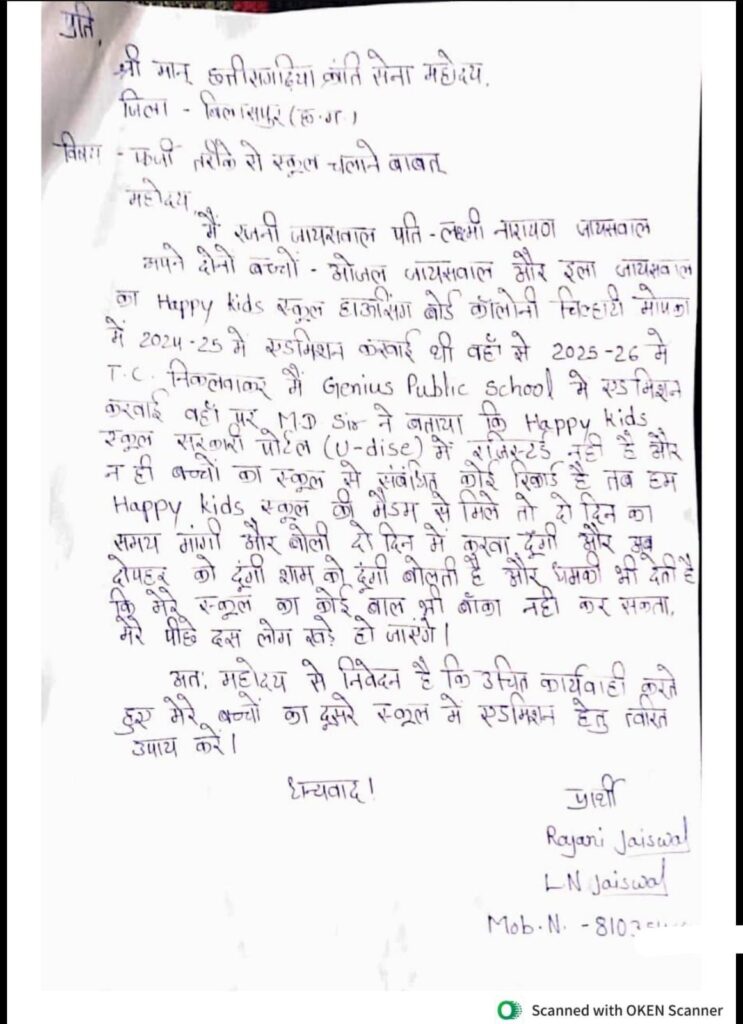 प्रति,
श्री मान् छत्तीसगढ़िया क्रांति सेना महोदय,
जिला - बिलासपुर (छ.ग.)
विषय - फर्जी तरीके से स्कूल चलाने बाबत्
महोदय,
मैं रजनी जायसवाल पति - लक्ष्मी नारायण जायसवाल
अपने दोनों बच्चों - ओजल जायसवाल और इला जायसवाल
का Happy kids स्कूल हाऊसिंग बोर्ड कॉलोनी चिल्हाटी मोपका
में 2024-25 में एडमिशन करवाई थी वहाँ से 2025-26 में
T.C. निकलवाकर मैं Genius Public School में एडमिशन
करवाई वहाँ पर M.D Sir ने बताया कि Happy kids
स्कूल सरकारी पोर्टल (U-dise) में रजिस्टर्ड नहीं है और
न ही बच्चों का स्कूल से संबंधित कोई रिकार्ड है तब हम
Happy kids स्कूल की मैडम से मिले तो दो दिन का
समय मांगी और बोली दो दिन में करवा दूंगी और अब
दोपहर को दूंगी शाम को दूंगी बोलती है और धमकी भी देती है
कि मेरे स्कूल का कोई बाल भी बाँका नहीं कर सकता,
मेरे पीछे दस लोग खड़े हो जाएंगे।
अतः महोदय से निवेदन है कि उचित कार्यवाही करते
हुए मेरे बच्चों का दूसरे स्कूल में एडमिशन हेतु त्वरित
उपाय करें।
धन्यवाद!
प्रार्थी
Rajani Jaiswal
LN Jaiswal
Mob.N. - 810
Scanned with OKEN Scanner